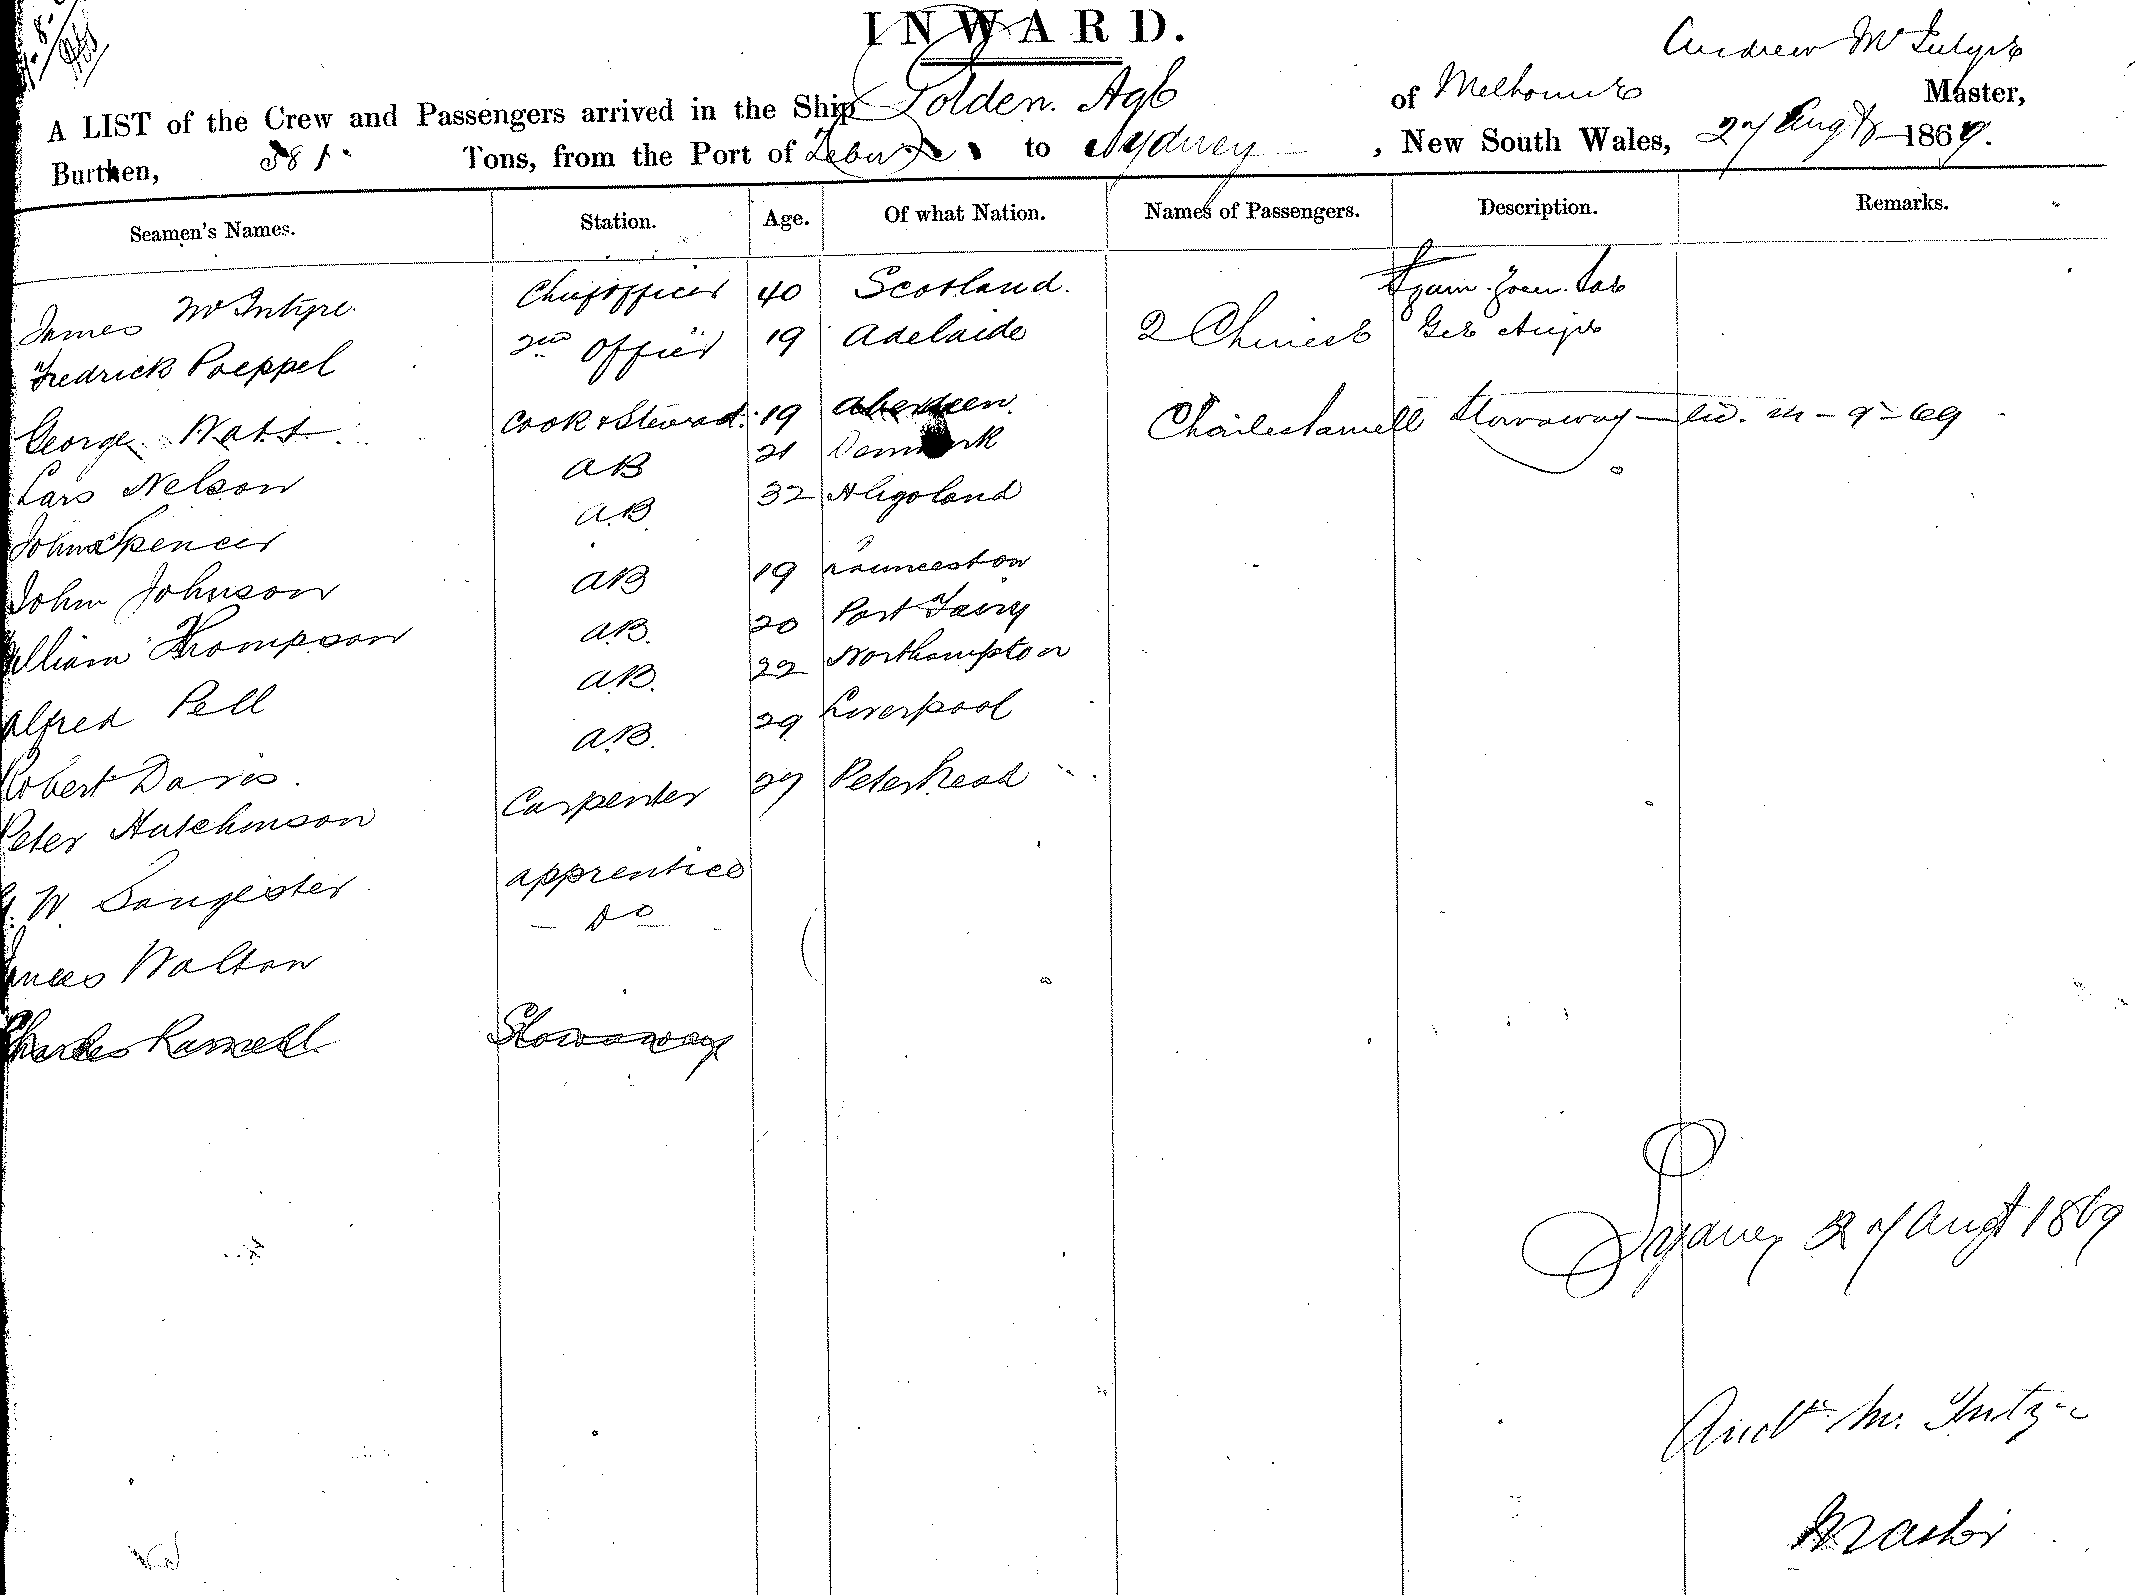 INWARD.
Andrew McIntyre
A LIST of the Crew and Passengers arrived in the Ship Golden. Age of Melbourne Master,
Burthen, 581 Tons, from the Port of Zebu to Sydney, New South Wales, 27 Augt 1869.
Seamen's Names. Station. Age. Of what Nation. Names of Passengers. Description. Remarks.
James McIntyre Chief officer 40 Scotland.
Fredrick Poeppel 2nd officer 19 Adelaide 2 Chinese
George Watt Cook & Steward 19 Aberdeen Charles Stowaway
Lars Nelson AB 21 Denmark
John Spencer AB 32 Aligoland
John Johnson AB 19 Launceston
William Thompson AB 20 Port Fairy
Alfred Pell AB 22 Northampton
Robert Davis AB 29 Liverpool
Peter Hutchinson Carpenter 27 Peterhead
W Sangester apprentice
James Walton Do
Charles Stowaway
Sydney 27 Augt 1869
Andw McIntyre
Master